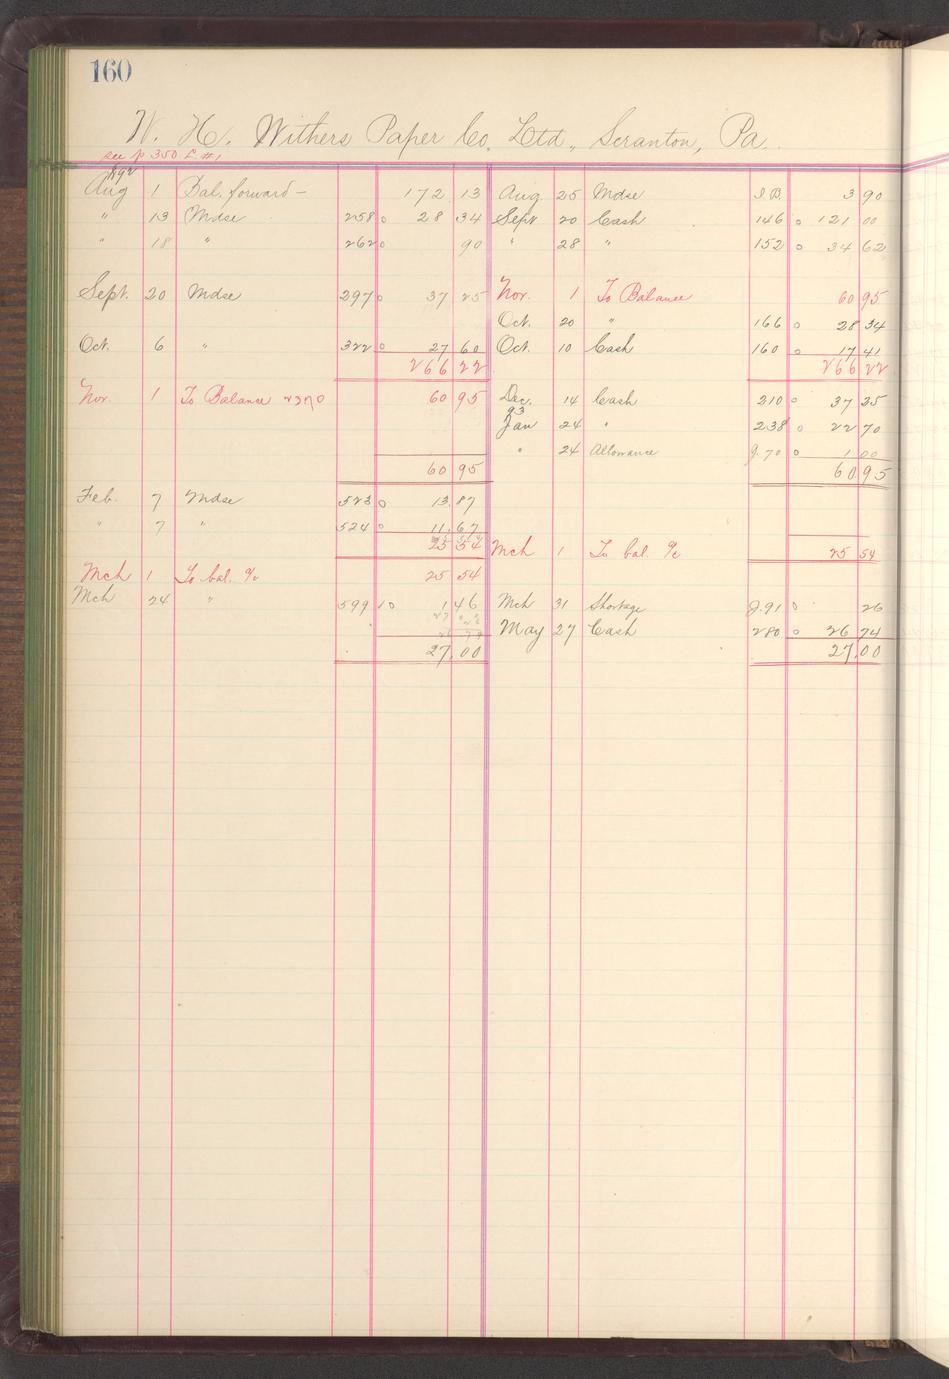 160
W. H. Withers Paper Co. Ltd., Scranton, Pa.
see p 350 L. #1
Aug 1 Bal. forward — 172 13 Aug. 25 Mdse I.B. 3 90
" 13 Mdse 258 0 28 34 Sept 20 Cash 146 0 121 00
" 18 " 262 0 90 " 28 " 152 0 34 62
Sept. 20 Mdse 297 0 37 25 Nov. 1 To Balance 60 95
Oct. 20 " 166 0 28 34
Oct. 6 " 322 0 27 60 Oct. 10 Cash 160 0 17 41
266 22 266 22
Nov. 1 To Balance 2370 60 95 Dec. 14 Cash 210 0 37 25
93
Jan 24 " 238 0 22 70
" 24 Allowance J. 70 0 1 00
60 95 60 95
Feb. 7 Mdse 523 0 13.87
" 7 " 524 0 11.67
25 54 Mch 1 To bal. % 25 54
Mch 1 To bal. % 25 54
Mch 24 " 599 10 1 46 Mch 31 Shortage J. 91 0 26
May 27 Cash 280 0 26 74
27.00 27.00